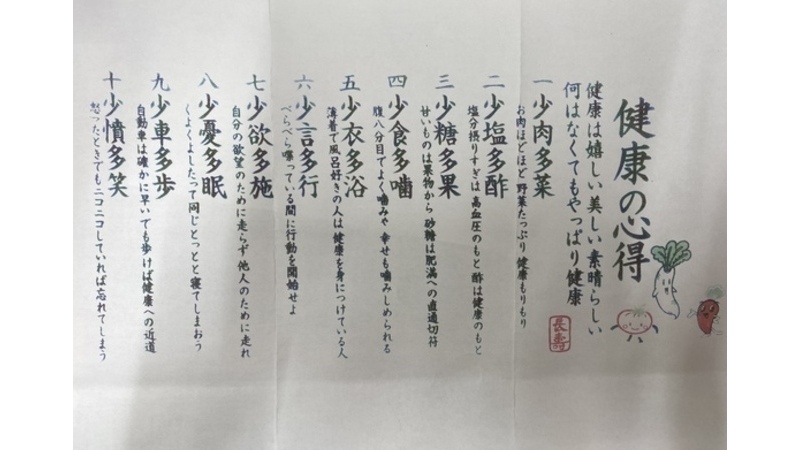 健康の心得
健康は嬉しい 美しい 素晴らしい
何はなくてもやっぱり健康
長寿
一 少肉多菜
お肉ほどほど 野菜たっぷり 健康もりもり
二 少塩多酢
塩分摂りすぎは 高血圧のもと 酢は健康のもと
三 少糖多果
甘いものは果物から 砂糖は肥満への直通切符
四 少食多噛
腹八分目でよく噛みや 幸せも噛みしめられる
五 少衣多浴
薄着で風呂好きの人は 健康を身につけている人
六 少言多行
べらべら喋っている間に行動を開始せよ
七 少欲多施
自分の欲望のために走らず 他人のために走れ
八 少憂多眠
くよくよしたって同じ とっとと寝てしまおう
九 少車多歩
自動車は確かに早いでも歩けば健康への近道
十 少憤多笑
怒ったときでもニコニコしていれば忘れてしまう